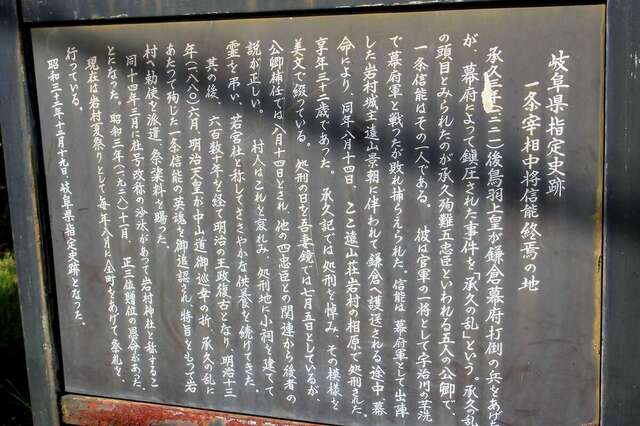 岐阜県指定史跡
一条宰相中将信能終焉の地
承久三年(一二二一)後鳥羽上皇が鎌倉幕府打倒の兵をあげた
が、幕府によって鎮圧された事件を「承久の乱」という。承久の乱
の頭目とみられたのが承久殉難五忠臣といわれる五人の公卿で、
一条信能はその一人である。 彼は官軍の一将として宇治川の芋洗
で幕府軍と戦つたが敗れ捕らえられた。信能は、幕府軍として出陣
した岩村城主遠山景朝に伴われて鎌倉へ護送される途中、幕
命により、同年八月十四日、ここ遠山荘岩村の相原で処刑された。
享年三十二歳であった。 承久記では処刑を悼み、その模様を
美文で綴っている。 処刑の日を吾妻鏡では七月五日としているが、
公卿補任では八月十四日とされ、他の四忠臣との関連から後者の
説が正しい。 村人はこれを哀れみ、処刑地に小祠を建てて
霊を弔い、若宮社と称してささやかな供養を続けてきた。
其の後、 六百数十年を経て明治の王政復古となり、明治十三
年(一八八〇)六月、明治天皇が中山道御巡幸の折、承久の乱に
あたつて殉じた一条信能の英魂を御追認され、特旨をもつて岩
村へ勅使を派遣、祭粢料を賜った。
同十四年三月に社号改称の沙汰があって岩村神社と称するこ
とになった。昭和三年(一九二八)十一月、 正三位贈位の恩命があった。
現在は岩村夏祭りとして毎年八月に全町をあげて祭礼を
行っている。
昭和三十二年十二月十九日、岐阜県指定史跡となった。